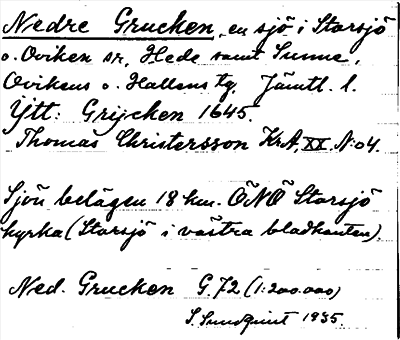 Nedre Grucken, en sjö i Storsjö
o. Oviken sr, Hede samt Sunne,
Ovikens o. Hallens tg, Jämtl. l.
Ytt: Grijcken 1645.
Thomas Christersson KrA, XX, N:o 4.
Sjön belägen 18 km. ÖNÖ Storsjö
kyrka (Storsjö i västra bladkanten).
Ned. Grucken G.72 (1:200.000)
S. Sundquist 1935.